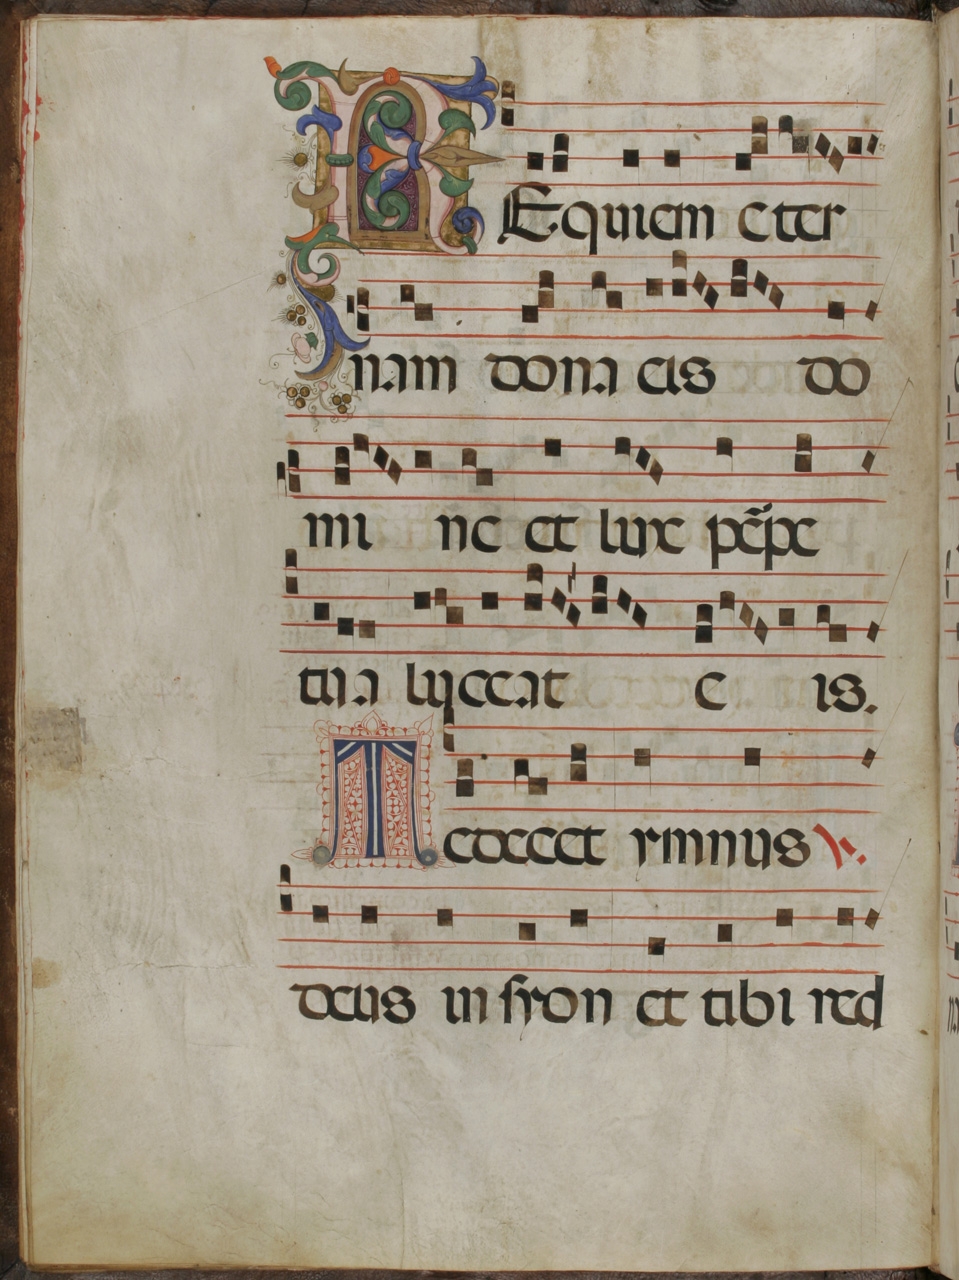 REquiem eter
nam dona eis do
mi ne et lux pẽpe
tua luceat e is.
Te decet ymnus ℣.
deus in syon et tibi red